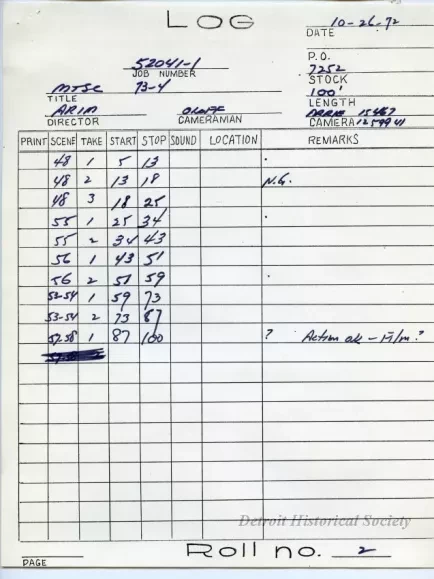 LOG
10-26-72
DATE
52041-1
JOB NUMBER
P.O.
7252
STOCK
MTSC 73-4
TITLE
100'
LENGTH
ARIM
DIRECTOR
CAMERAMAN
CAMERA
PRINT SCENE TAKE START STOP SOUND LOCATION REMARKS
48 1 5 13
48 2 13 18 N.G.
48 3 18 25
55 1 25 34
55 2 34 43
56 1 43 51
56 2 51 59
53-54 1 59 73
53-54 2 73 87
57-58 1 87 100 ? Action ok -
Detroit Historical Society
PAGE
Roll no. 2